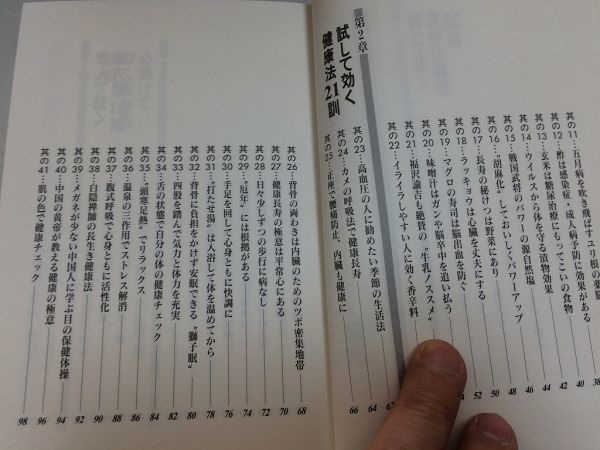 其の11…五月病を吹き飛ばすユリ根の薬膳 38
其の12…酢は感染症・成人病予防に効果がある 40
其の13…玄米は糖尿治療にもってこいの食物 42
其の14…ウイルスから体を守る漬物効果 44
其の15…戦国武将のパワーの源自然塩 46
其の16…"胡麻化"しておいしくパワーアップ 48
其の17…長寿の秘けつは野菜にあり 50
其の18…ラッキョウは心臓を丈夫にする 52
其の19…マグロの寿司は脳出血を防ぐ
其の20…味噌汁はガンや脳卒中を追い払う
其の21…福沢諭吉も絶賛の"牛乳ノススメ"
其の22…イライラしやすい人に効く香辛料
第2章
試して効く
健康法21訓
其の23…高血圧の人に勧めたい季節の生活法 64
其の24…カメの呼吸法で健康長寿 66
其の25…正座で腰痛防止、内臓も健康に
其の26…背骨の両わきは内臓のためのツボ密集地帯 68
其の27…健康長寿の極意は平常心にある 70
其の28…日々少しずつの歩行に病なし 72
其の29…"厄年"には根拠がある 74
其の30…手足を回して心身ともに快調に 76
其の31…"打たせ湯"は入浴して体を温めてから 78
其の32…背骨に負担をかけず安眠できる"獅子眠" 80
其の33…四股を踏んで気力と体力を充実 82
其の34…舌の状態で自分の体の健康チェック 84
其の35…"頭寒足熱"でリラックス 86
其の36…温泉の三作用でストレス解消 88
其の37…腹式呼吸で心身ともに活性化 90
其の38…白隠禅師の長生き健康法 92
其の39…メガネが少ない中国人に学ぶ目の保健体操 94
其の40…中国の黄帝が教える健康の極意 96
其の41…肌の色で健康チェック 98